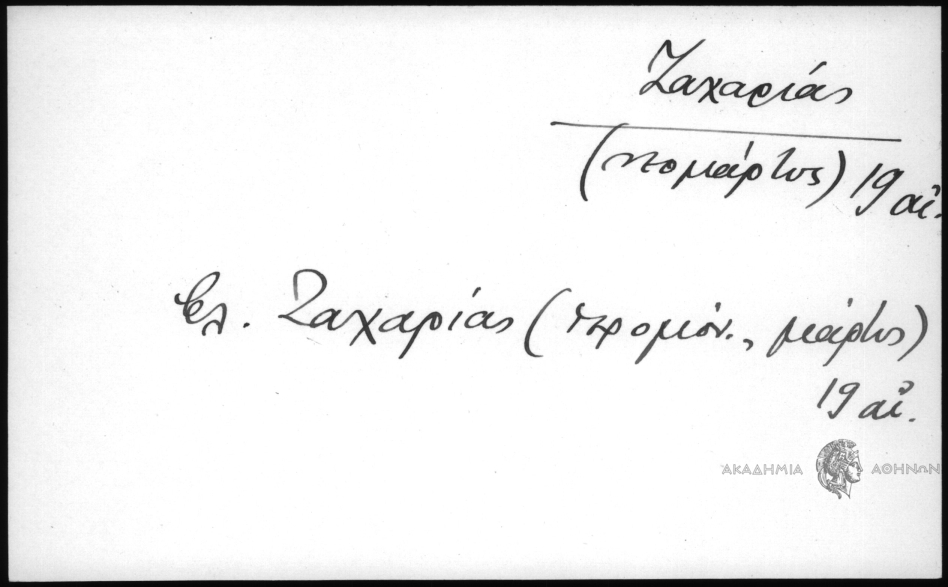 Ζαχαρίας
(νεομάρτυς) 19 αἰ.
βλ. Ζαχαρίας (ἱερομόν., μάρτυς)
19 αἰ.
ἈΚΑΔΗΜΙΑ ΑΘΗΝΩΝ